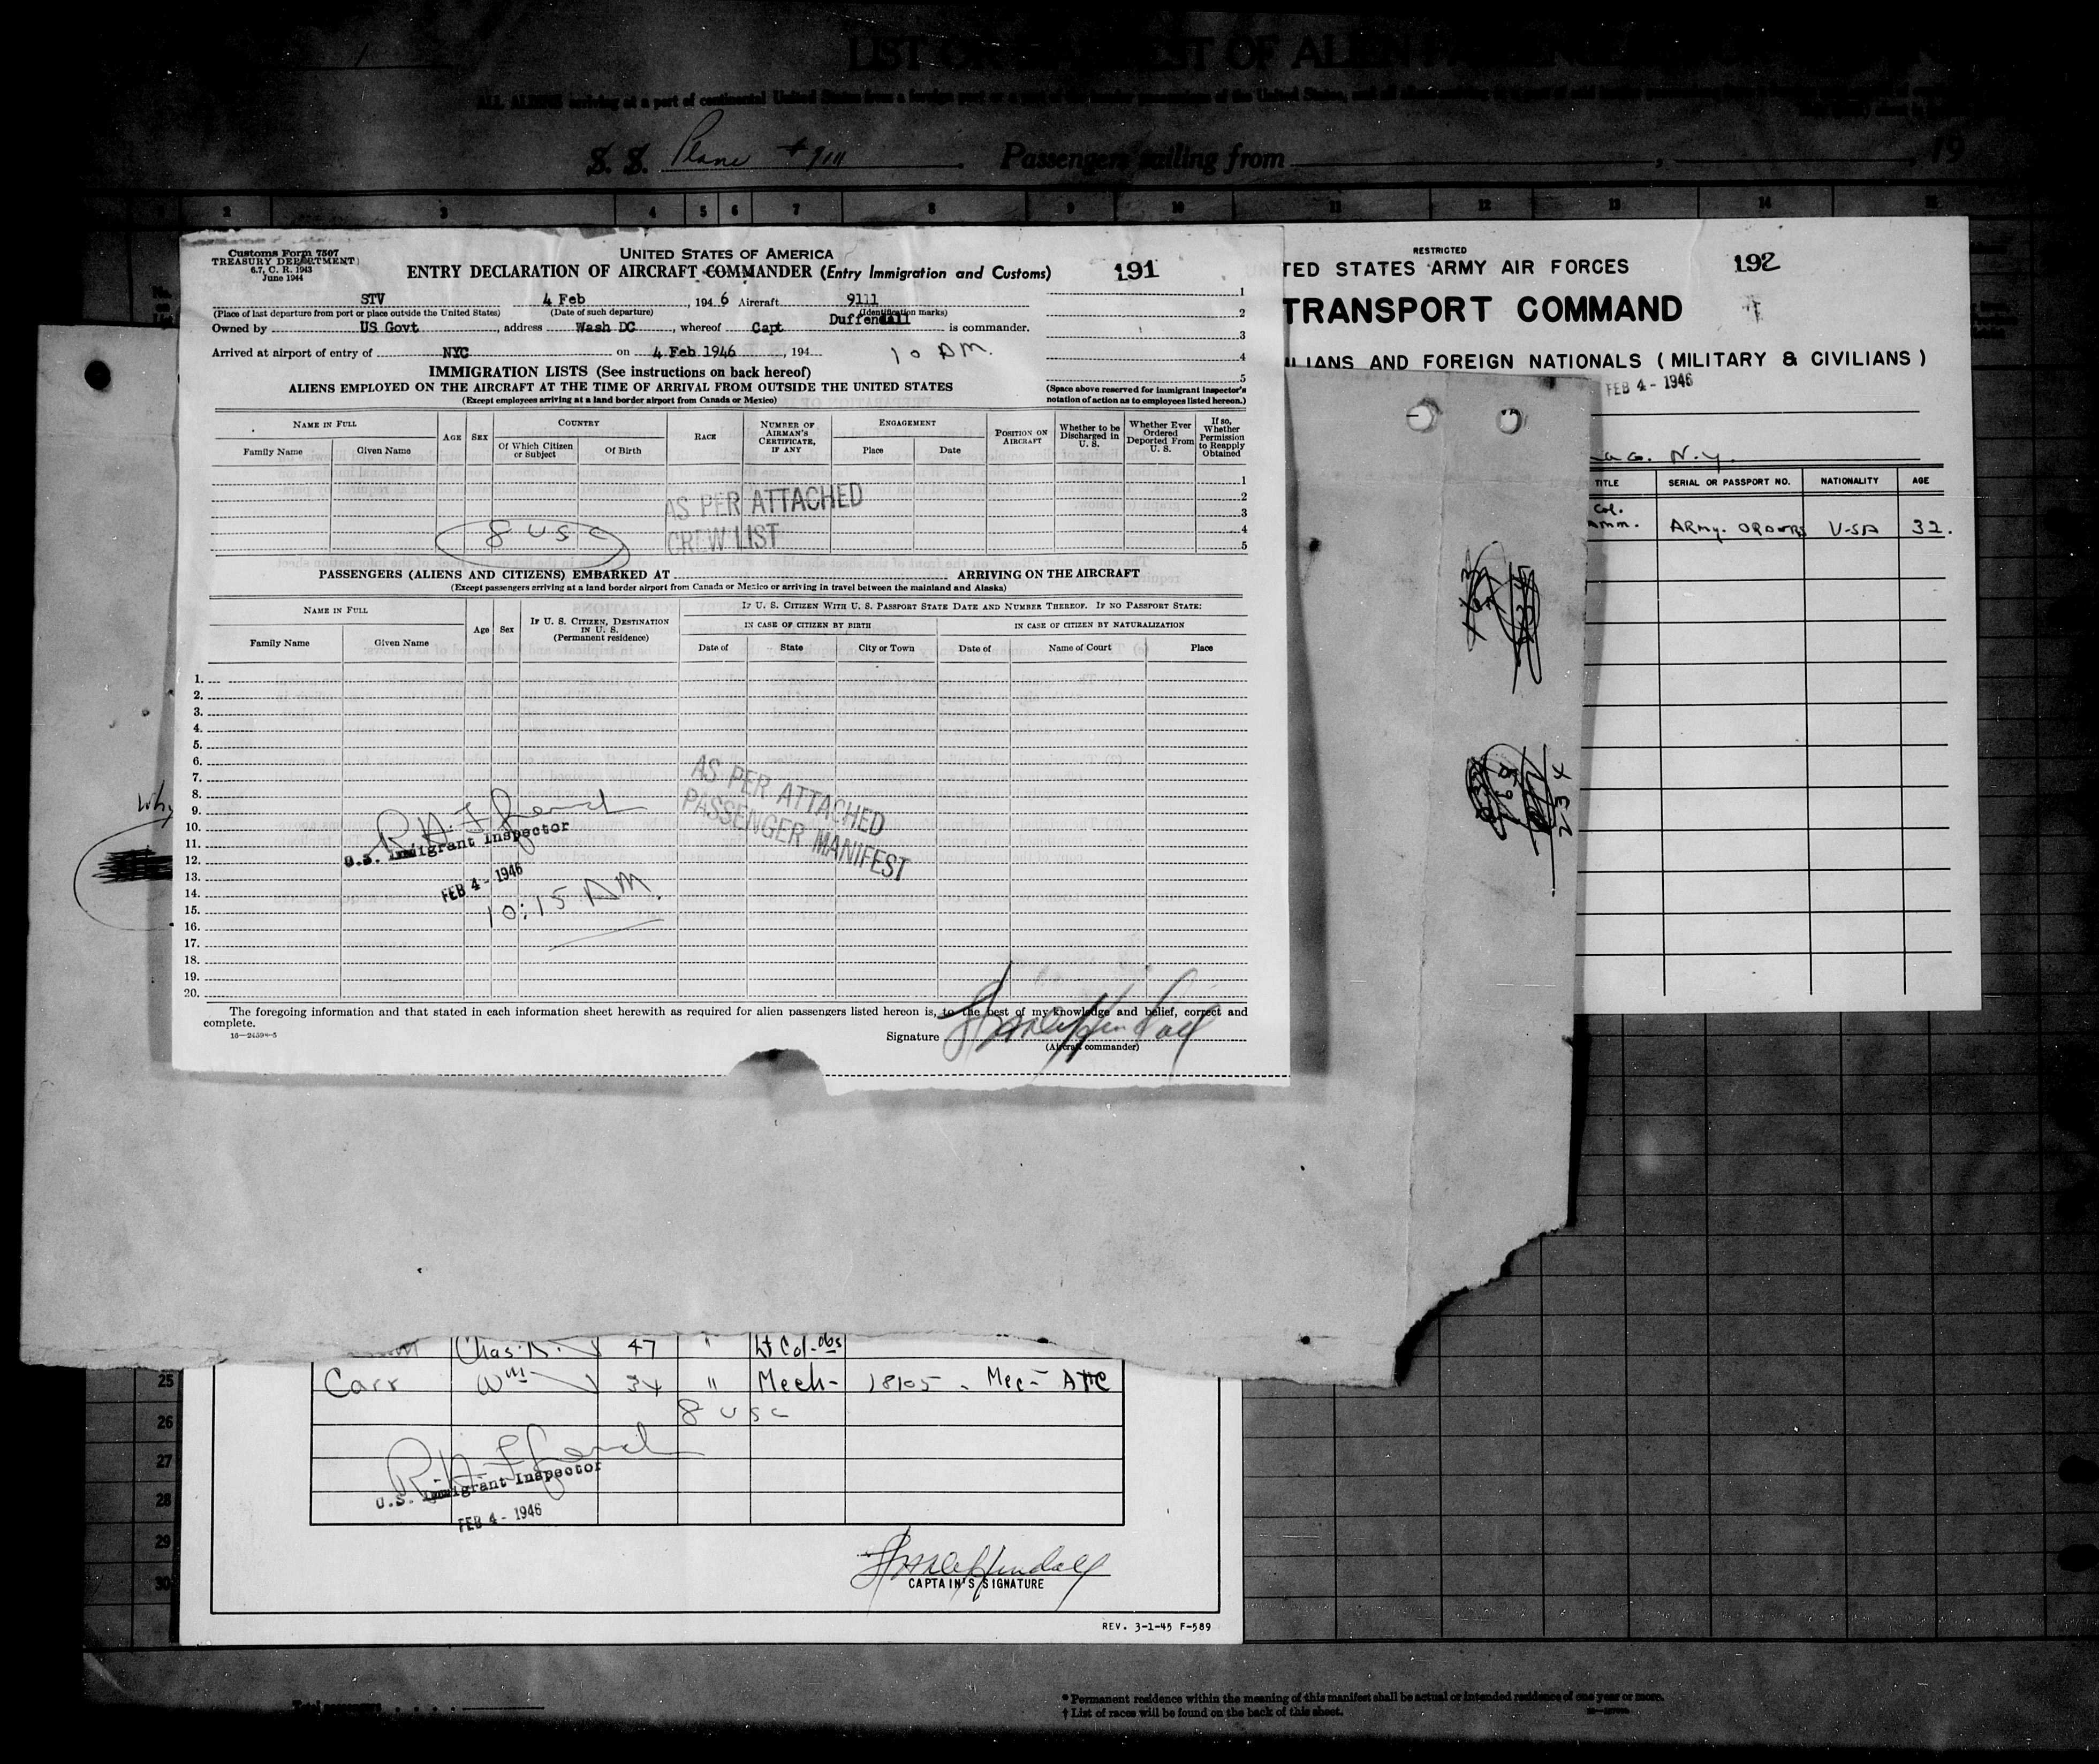 LIST OR MANIFEST OF ALIEN PASSENGERS
ALL ALIENS arriving at a port of continental United States from a foreign port or a port of the insular possessions of the United States, and all aliens arriving at a port of said insular possessions from a foreign port
S. S. Plane # 9111 Passengers sailing from , 19
1 2 3 4 5 6 7 8 9 10 11 12 13 14 15
Customs Form 7507
TREASURY DEPARTMENT
6.7, C. R. 1943
June 1944
UNITED STATES OF AMERICA
ENTRY DECLARATION OF AIRCRAFT COMMANDER (Entry Immigration and Customs)
191
STV 4 Feb , 194 6 Aircraft 9111
(Place of last departure from port or place outside the United States) (Date of such departure) (Identification marks)
Owned by US Govt , address Wash DC , whereof Capt Duffendall is commander.
Arrived at airport of entry of NYC on 4 Feb 1946 , 194 10 AM.
1
2
3
4
5
(Space above reserved for immigrant inspector's notation of action as to employees listed hereon.)
IMMIGRATION LISTS (See instructions on back hereof)
ALIENS EMPLOYED ON THE AIRCRAFT AT THE TIME OF ARRIVAL FROM OUTSIDE THE UNITED STATES
(Except employees arriving at a land border airport from Canada or Mexico)
NAME IN FULL AGE SEX COUNTRY RACE NUMBER OF AIRMAN'S CERTIFICATE, IF ANY ENGAGEMENT POSITION ON AIRCRAFT Whether to be Discharged in U. S. Whether Ever Ordered Deported From U. S. If so, Whether Permission to Reapply Obtained
Family Name Given Name Of Which Citizen or Subject Of Birth Place Date
1
2
3
4
5
AS PER ATTACHED
CREW LIST
8 USC
PASSENGERS (ALIENS AND CITIZENS) EMBARKED AT ARRIVING ON THE AIRCRAFT
(Except passengers arriving at a land border airport from Canada or Mexico or arriving in travel between the mainland and Alaska)
NAME IN FULL Age Sex IF U. S. CITIZEN, DESTINATION IN U. S. (Permanent residence) IF U. S. CITIZEN WITH U. S. PASSPORT STATE DATE AND NUMBER THEREOF. IF NO PASSPORT STATE:
IN CASE OF CITIZEN BY BIRTH IN CASE OF CITIZEN BY NATURALIZATION
Family Name Given Name Date of State City or Town Date of Name of Court Place
1.
2.
3.
4.
5.
6.
7.
8.
9.
10.
11.
12.
13.
14.
15.
16.
17.
18.
19.
20.
AS PER ATTACHED
PASSENGER MANIFEST
R. H. French
U.S. Immigrant Inspector
FEB 4 - 1946
10:15 AM.
The foregoing information and that stated in each information sheet herewith as required for alien passengers listed hereon is, to the best of my knowledge and belief, correct and
complete.
16—24598-5
Signature
(Aircraft commander)
RESTRICTED
UNITED STATES ARMY AIR FORCES
192
TRANSPORT COMMAND
CIVILIANS AND FOREIGN NATIONALS (MILITARY & CIVILIANS)
FEB 4 - 1946
N.Y.
TITLE SERIAL OR PASSPORT NO. NATIONALITY AGE
Col. Army. ORDERS U-SA 32.
234
Why
Chas. 47 " Lt Col-obs
Carr Wm 34 " Mech- 18105 - Mec- ATC
8 USC
R. H. French
U.S. Immigrant Inspector
FEB 4 - 1946
CAPTAIN'S SIGNATURE
REV. 3-1-45 F-589
25
26
27
28
29
30
Total passengers
* Permanent residence within the meaning of this manifest shall be actual or intended residence of one year or more.
† List of races will be found on the back of this sheet.